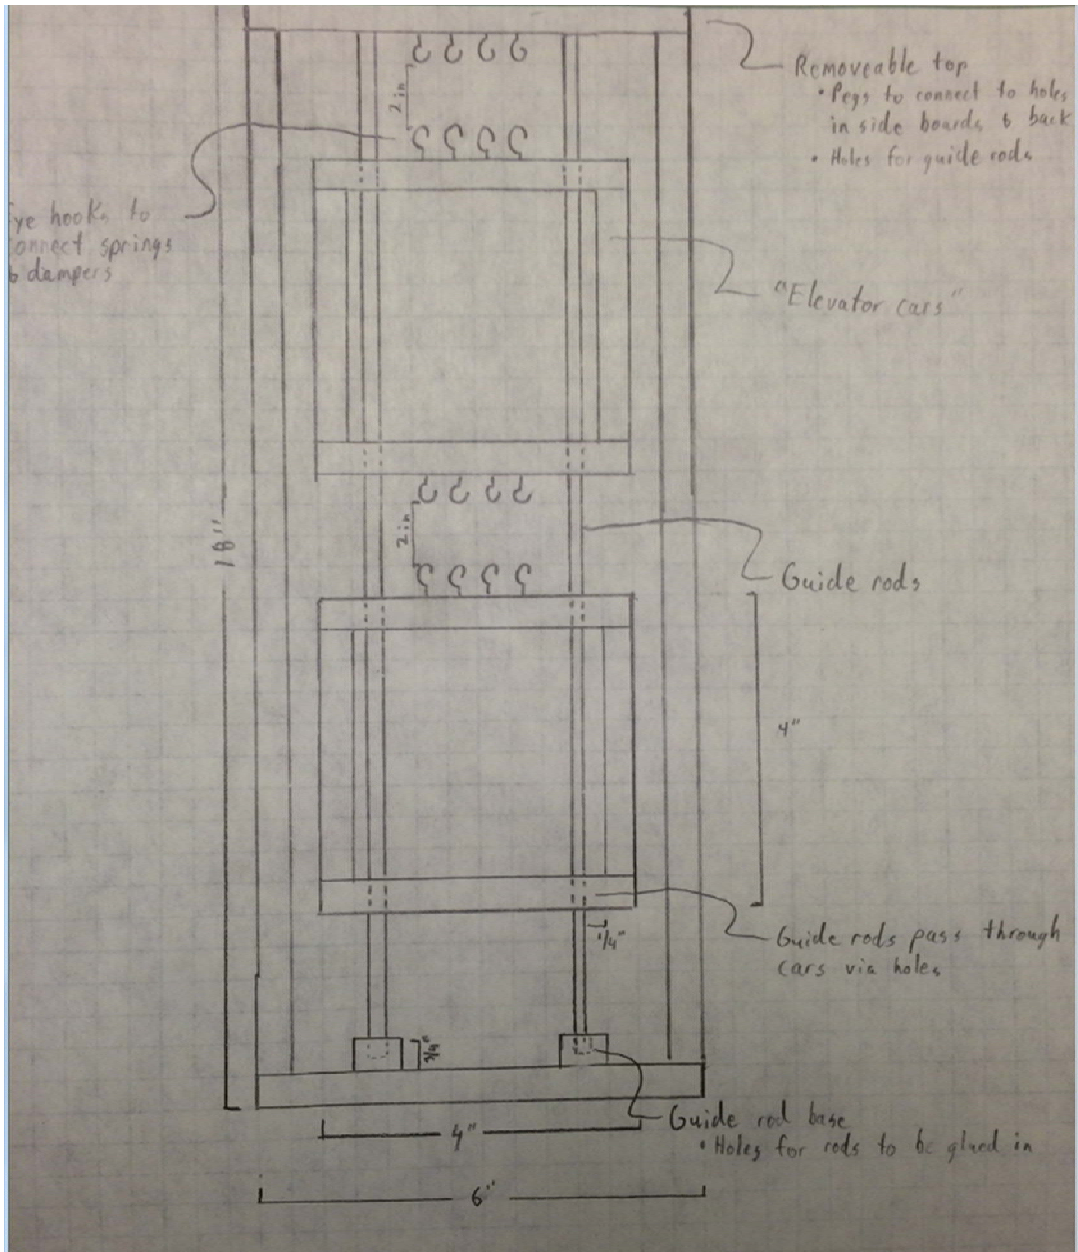 Removeable top
• Pegs to connect to holes
in side boards & back
• Holes for guide rods
2 in
ye hooks to
onnect springs
& dampers
"Elevator cars"
18"
2 in
Guide rods
4"
1/4"
Guide rods pass through
cars via holes
3/4"
Guide rod base
• Holes for rods to be glued in
4"
6"